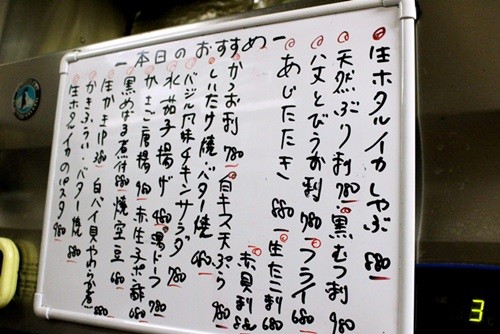 一本日のおすすめ一
生ホタルイカしゃぶ 880
天然ぶり刺 780 黒むつ刺 980
八丈とびうお刺 780 フライ 680
あじたたき 880 生たこ刺 680
赤貝刺 880
かつお刺 780 白キス天ぷら 780
しいたけ焼・バター焼 680
バジル風味チキンサラダ 780
水茄子揚げ 480 湯ドーフ 780
かさご唐揚 980 赤生子ポン酢 680
黒めばる煮付 880 焼空豆 680
生かき1P 380 白バイ貝やわらか煮 680
かきふらい・バター焼 880
生ホタルイカのパスタ 980
3